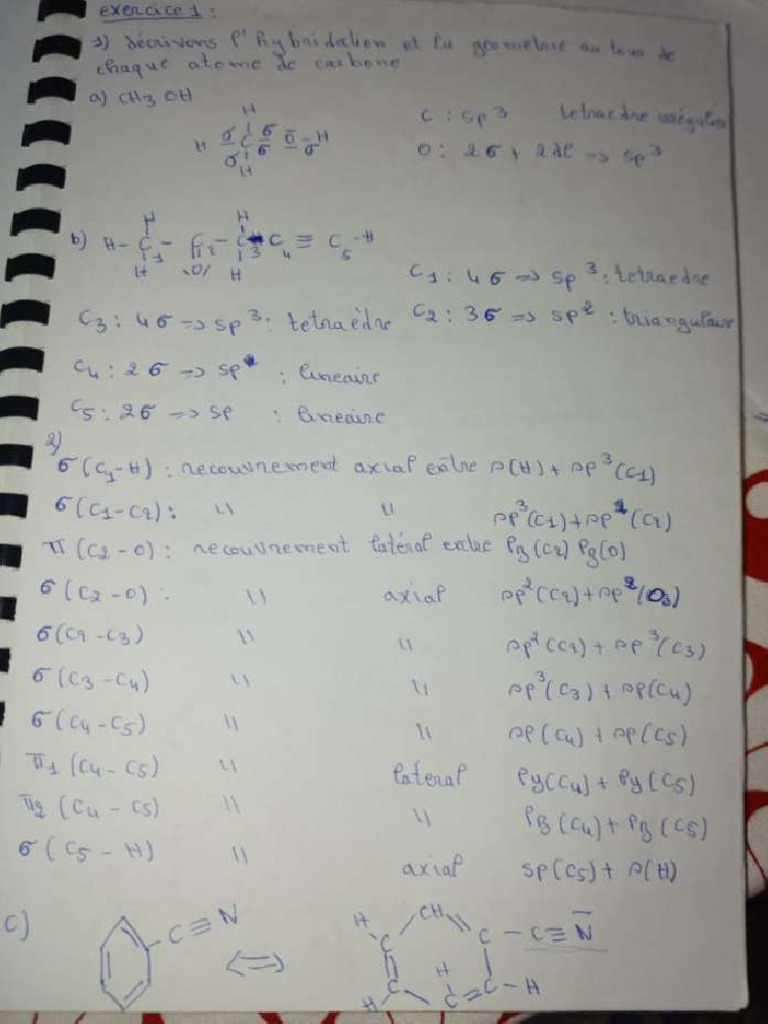 exercice 1 :
1) décrivons l'hybridation et la géometrie autour de
chaque atome de carbone
a) CH3 OH
H
H σ C σ O̅ - H
σ σ σ
H
C : sp³ tetraedre irrégulier
O : 2σ + 2dl => sp³
H H
b) H - C1 - C2 - C3 - C4 ≡ C5 - H
H O H
C1 : 4σ => sp³ : tetraedre
C3 : 4σ => sp³ : tetraèdre C2 : 3σ => sp² : triangulaire
C4 : 2σ => sp : lineaire
C5 : 2σ => sp : lineaire
2)
σ(C1-H) : recouvrement axial entre s(H) + sp³(C1)
σ(C1-C2) : '' '' sp³(C1) + sp²(C2)
π(C2-O) : recouvrement latéral entre Pz(C2) Pz(O)
σ(C2-O) : '' axial sp²(C2) + sp²(O3)
σ(C2-C3) '' '' sp²(C2) + sp³(C3)
σ(C3-C4) '' '' sp³(C3) + sp(C4)
σ(C4-C5) '' '' sp(C4) + sp(C5)
π1(C4-C5) '' lateral Py(C4) + Py(C5)
π2(C4-C5) '' '' Pz(C4) + Pz(C5)
σ(C5-H) '' axial sp(C5) + s(H)
c) C≡N <=> H C CH C - C≡N̅
H C H C = C - H